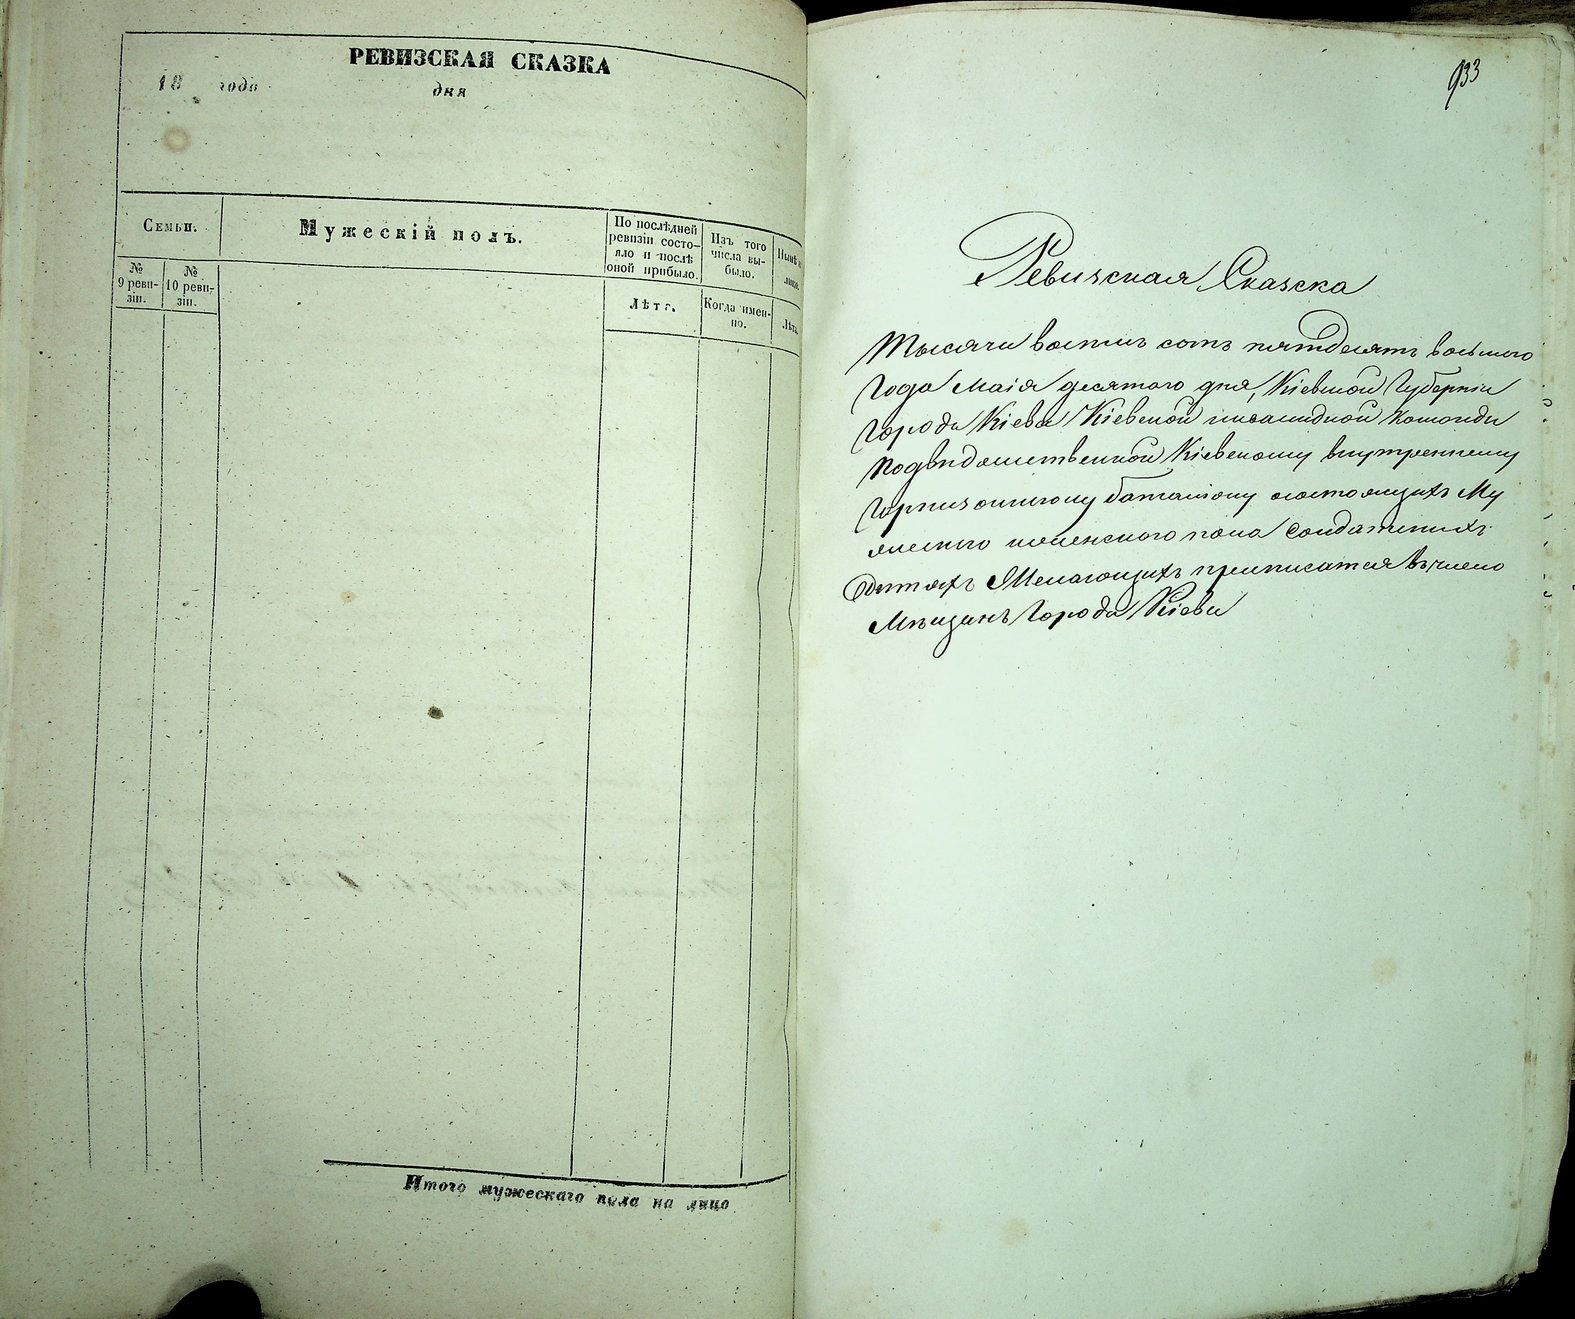 РЕВИЗСКАЯ СКАЗКА
18 года дня
Семьи.
Мужескій полъ.
По послѣдней
ревизіи состо-
яло и послѣ
оной прибыло.
Изъ того
числа вы-
было.
Нынѣ
лицо.
№
9 реви-
зіи.
№
10 реви-
зіи.
Лѣта.
Когда имен-
но.
Лѣта.
Итого мужескаго пола на лицо
933
Ревизская Сказка
Тысячи восемь сотъ пятдесятъ восьмого
Года Маія десятого дня, Кіевской Губерніи
Города Кіева Кіевской инвалидной команды
подвѣдомственной Кіевскому внутреннему
Гарнизонному баталіону состоящихъ Му
жеского женского пола солдатскихъ
дѣтяхъ Желающихъ приписатся въ число
Мѣщанъ Города Кіева